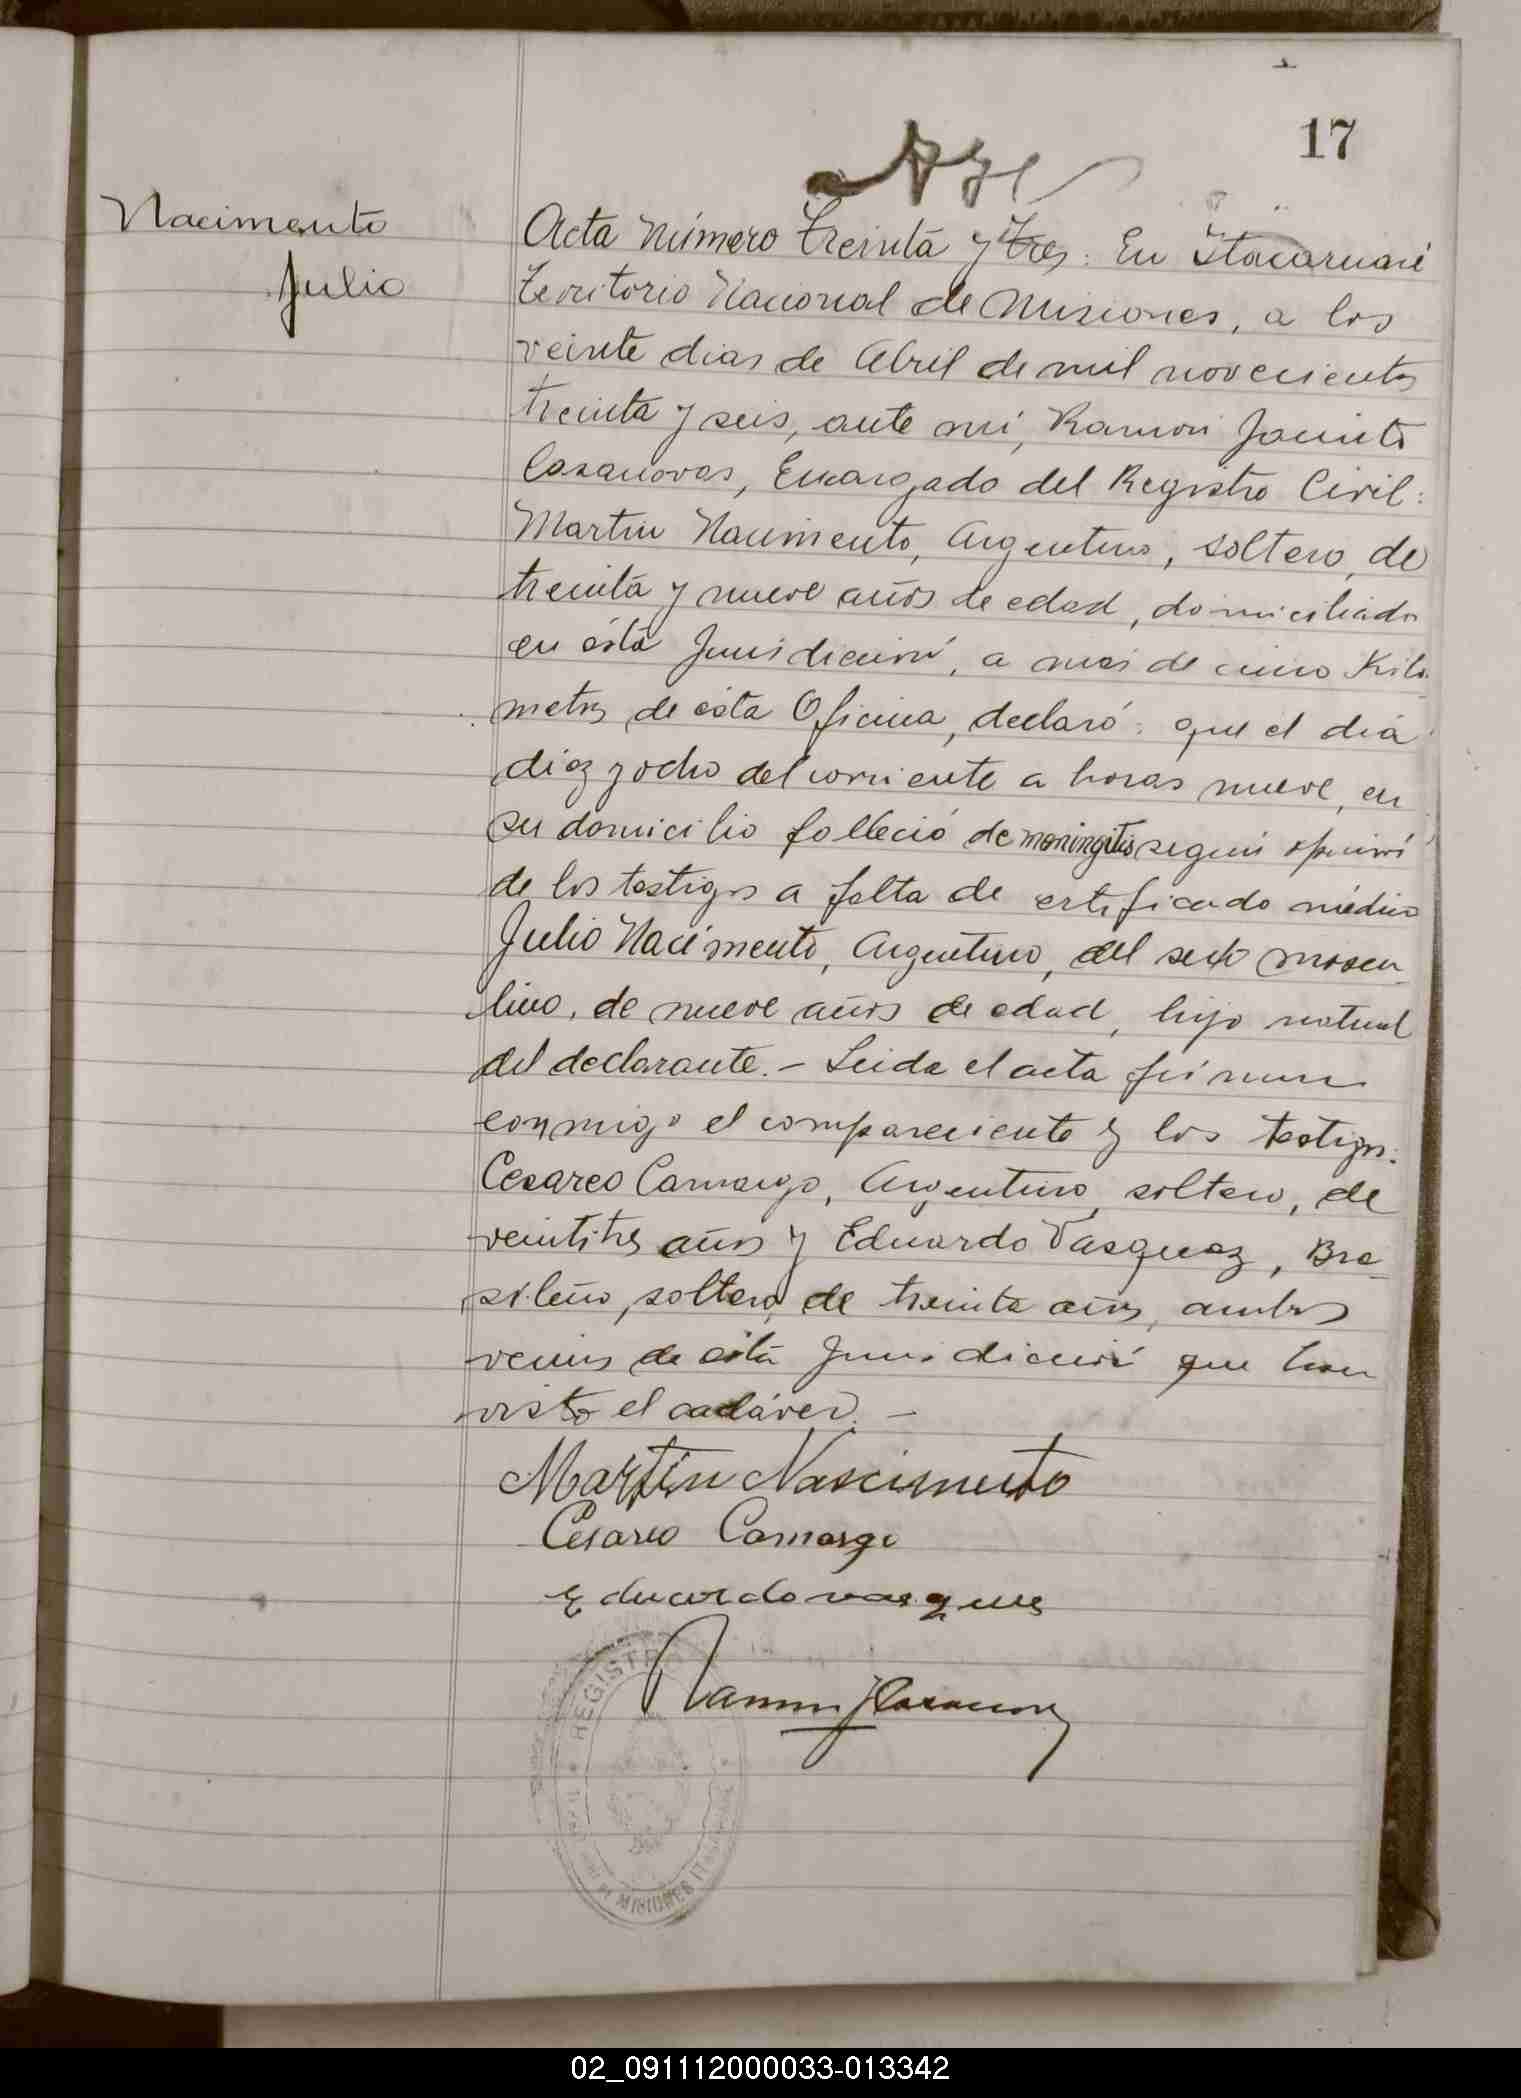 17
Nacimento
Julio
Acta Número treinta y tres: En Itacaruaré
Territorio Nacional de Misiones, a los
veinte dias de Abril de mil novecientos
treinta y seis, ante mi, Ramon Jacinto
Casanovas, Encargado del Registro Civil:
Martin Nacimento, Argentino, soltero, de
treinta y nueve años de edad, domiciliado
en ésta Jurisdicción, a mas de cinco Kilo
metros de ésta Oficina, declaró: que el dia
diez y ocho del corriente a horas nueve, en
su domicilio falleció de meningitis según opinión
de los testigos a falta de certificado médico
Julio Nacimento, Argentino, del sexo mascu
lino, de nueve años de edad, hijo natural
del declarante.- Leida el acta firman
conmigo el compareciente y los testigos:
Cesareo Camargo, Argentino, soltero, de
veintitres años y Eduardo Vasquez, Bra-
sileño, soltero, de treinta años, ambos
vecinos de ésta Jurisdicción que han
visto el cadáver.-
Martin Nascimento
Cesareo Camargo
Eduardo vasques
Ramon J Casanovas
REGISTRO
MISIONES
02_091112000033-013342